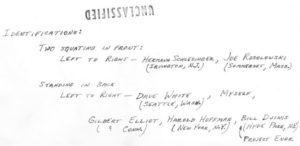 UNCLASSIFIED
IDENTIFICATIONS:
TWO SQUATING IN FRONT:
LEFT TO RIGHT - HERMAN SCHLESINGER, JOE
(IRVINGTON, N.J.) (SOMERSET, MASS.)
STANDING IN BACK
LEFT TO RIGHT - DAVE WHITE, MYSELF,
(SEATTLE, WASH.)
GILBERT ELLIOT, HAROLD HOFFMAN, BILL
(? CONN.) (NEW YORK, N.Y.) (HYDE PARK, N.Y.)
PROJECT ENGR